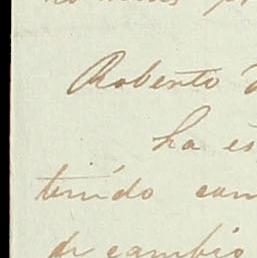 Roberto
ha es
tenido com
de cambio